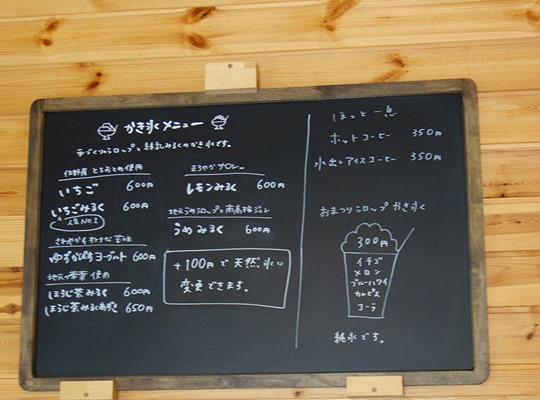 かき氷メニュー
手づくりシロップと練乳みるくのかき氷です。
佐野産 とちおとめ使用
いちご 600円
いちごみるく 600円
人気No.1
さわやかな 苦味
ゆずかぼすヨーグルト 600円
地元の茶葉 使用
ほうじ茶みるく 600円
ほうじ茶みるくあずき 650円
まろやかサワー
レモンみるく 600円
地元うめシロップと南高梅ジュレ
うめみるく 600円
+100円で天然氷に
変更できます。
ほっと一息
ホットコーヒー 350円
水出しアイスコーヒー 350円
おまつりシロップ かき氷
300円
イチゴ
メロン
ブルーハワイ
カルピス
コーラ
純氷です。